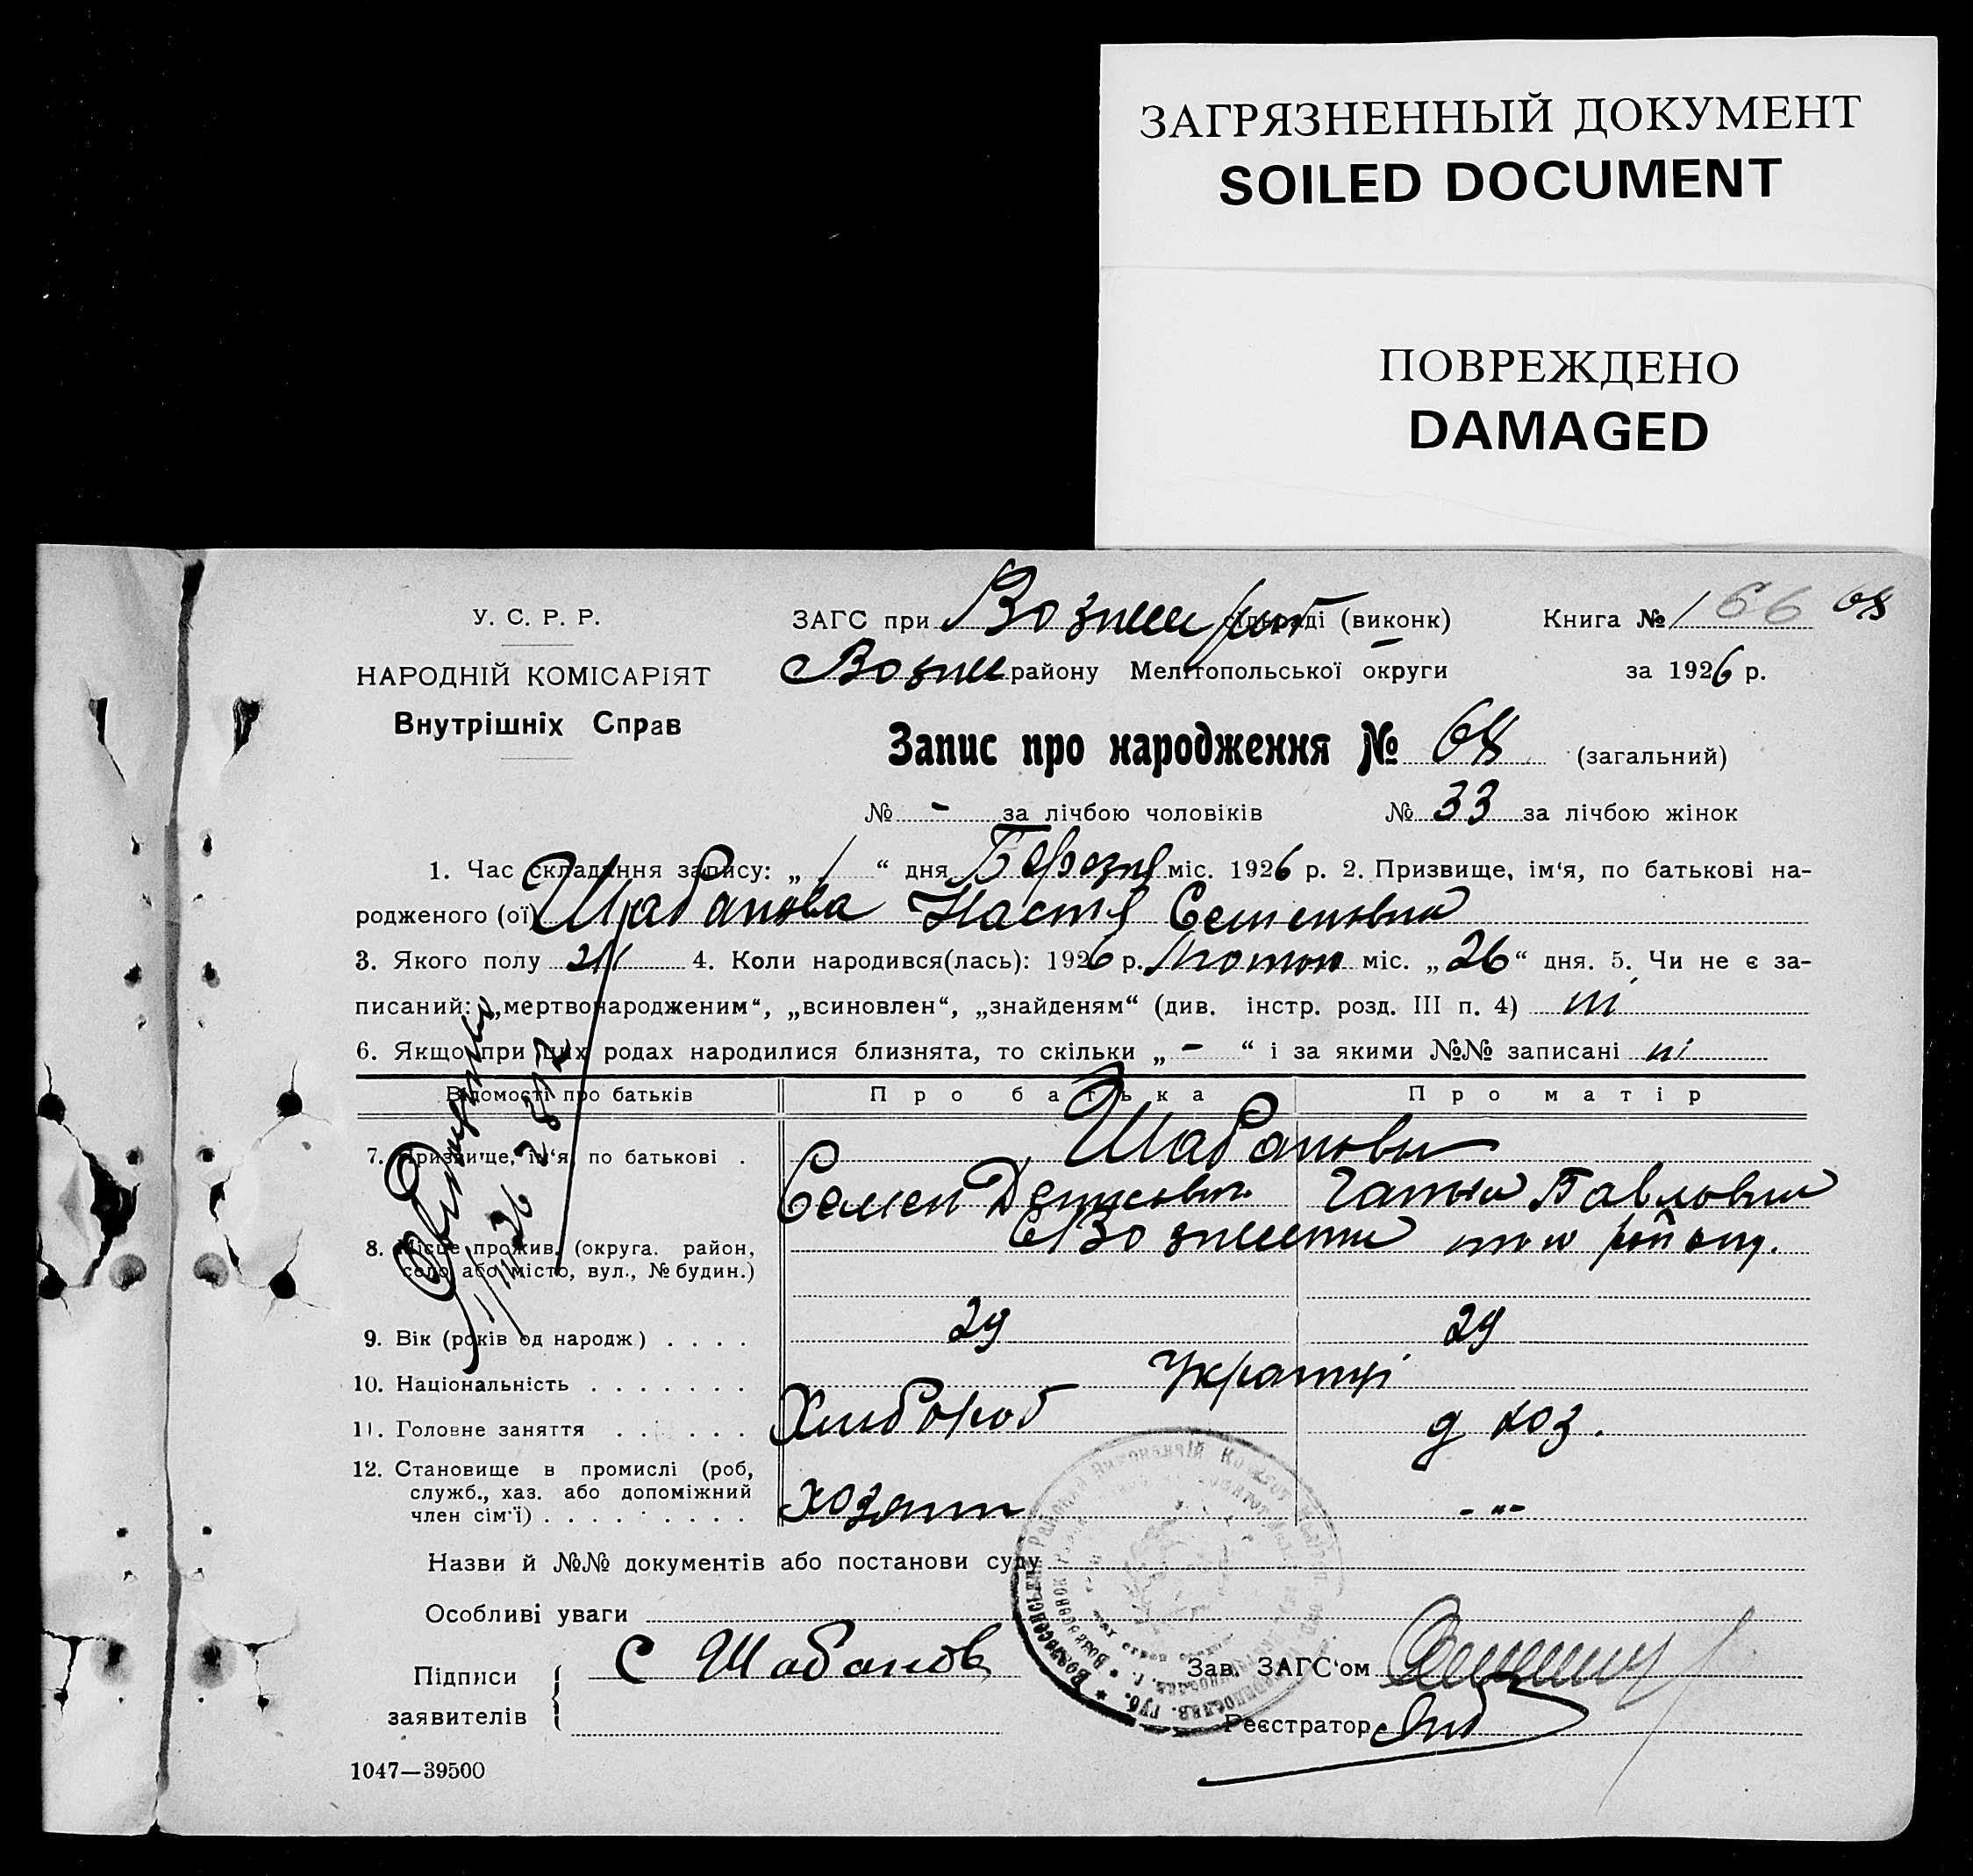 ЗАГРЯЗНЕННЫЙ ДОКУМЕНТ
SOILED DOCUMENT
ПОВРЕЖДЕНО
DAMAGED
У. С. Р. Р.
НАРОДНІЙ КОМІСАРІЯТ
Внутрішніх Справ
ЗАГС при сільраді (виконк)
району Мелітопольської округи
Книга № 166 68
за 1926 р.
Запис про народження № 68 (загальний)
№ - за лічбою чоловіків № 33 за лічбою жінок
1. Час складання запису: „ 1 “ дня Березня міс. 1926 р. 2. Призвище, ім‘я, по батькові на-
родженого (ої) Шабанова Настя Семеновна
3. Якого полу 4. Коли народився(лась): 1926 р. Лютого міс. „26“ дня. 5. Чи не є за-
писаний: „мертвонародженим“, „всиновлен“, „знайденям“ (див. інстр. розд. III п. 4) ні
6. Якщо при цих родах народилися близнята, то скільки „ - “ і за якими №№ записані ні
Відомості про батьків Про батька Про матір
7. Призвище, ім‘я, по батькові . Шабанови
Семен Ганна Павловна
8. Місце прожив. (округа. район,
село або місто, вул., № будин.)
9. Вік (років од народж) . . . . 29 29
10. Національність . . . . . . . Українці
11. Головне заняття . . . . . . Хлібороб д хоз.
12. Становище в промислі (роб,
служб., хаз. або допоміжний
член сім‘ї) . . . . . . . . . хозяїн - „ -
Назви й №№ документів або постанови суду
Особливі уваги
Підписи
заявителів
С Шабанов
Зав. ЗАГС‘ом
Реєстратор
1047—39500